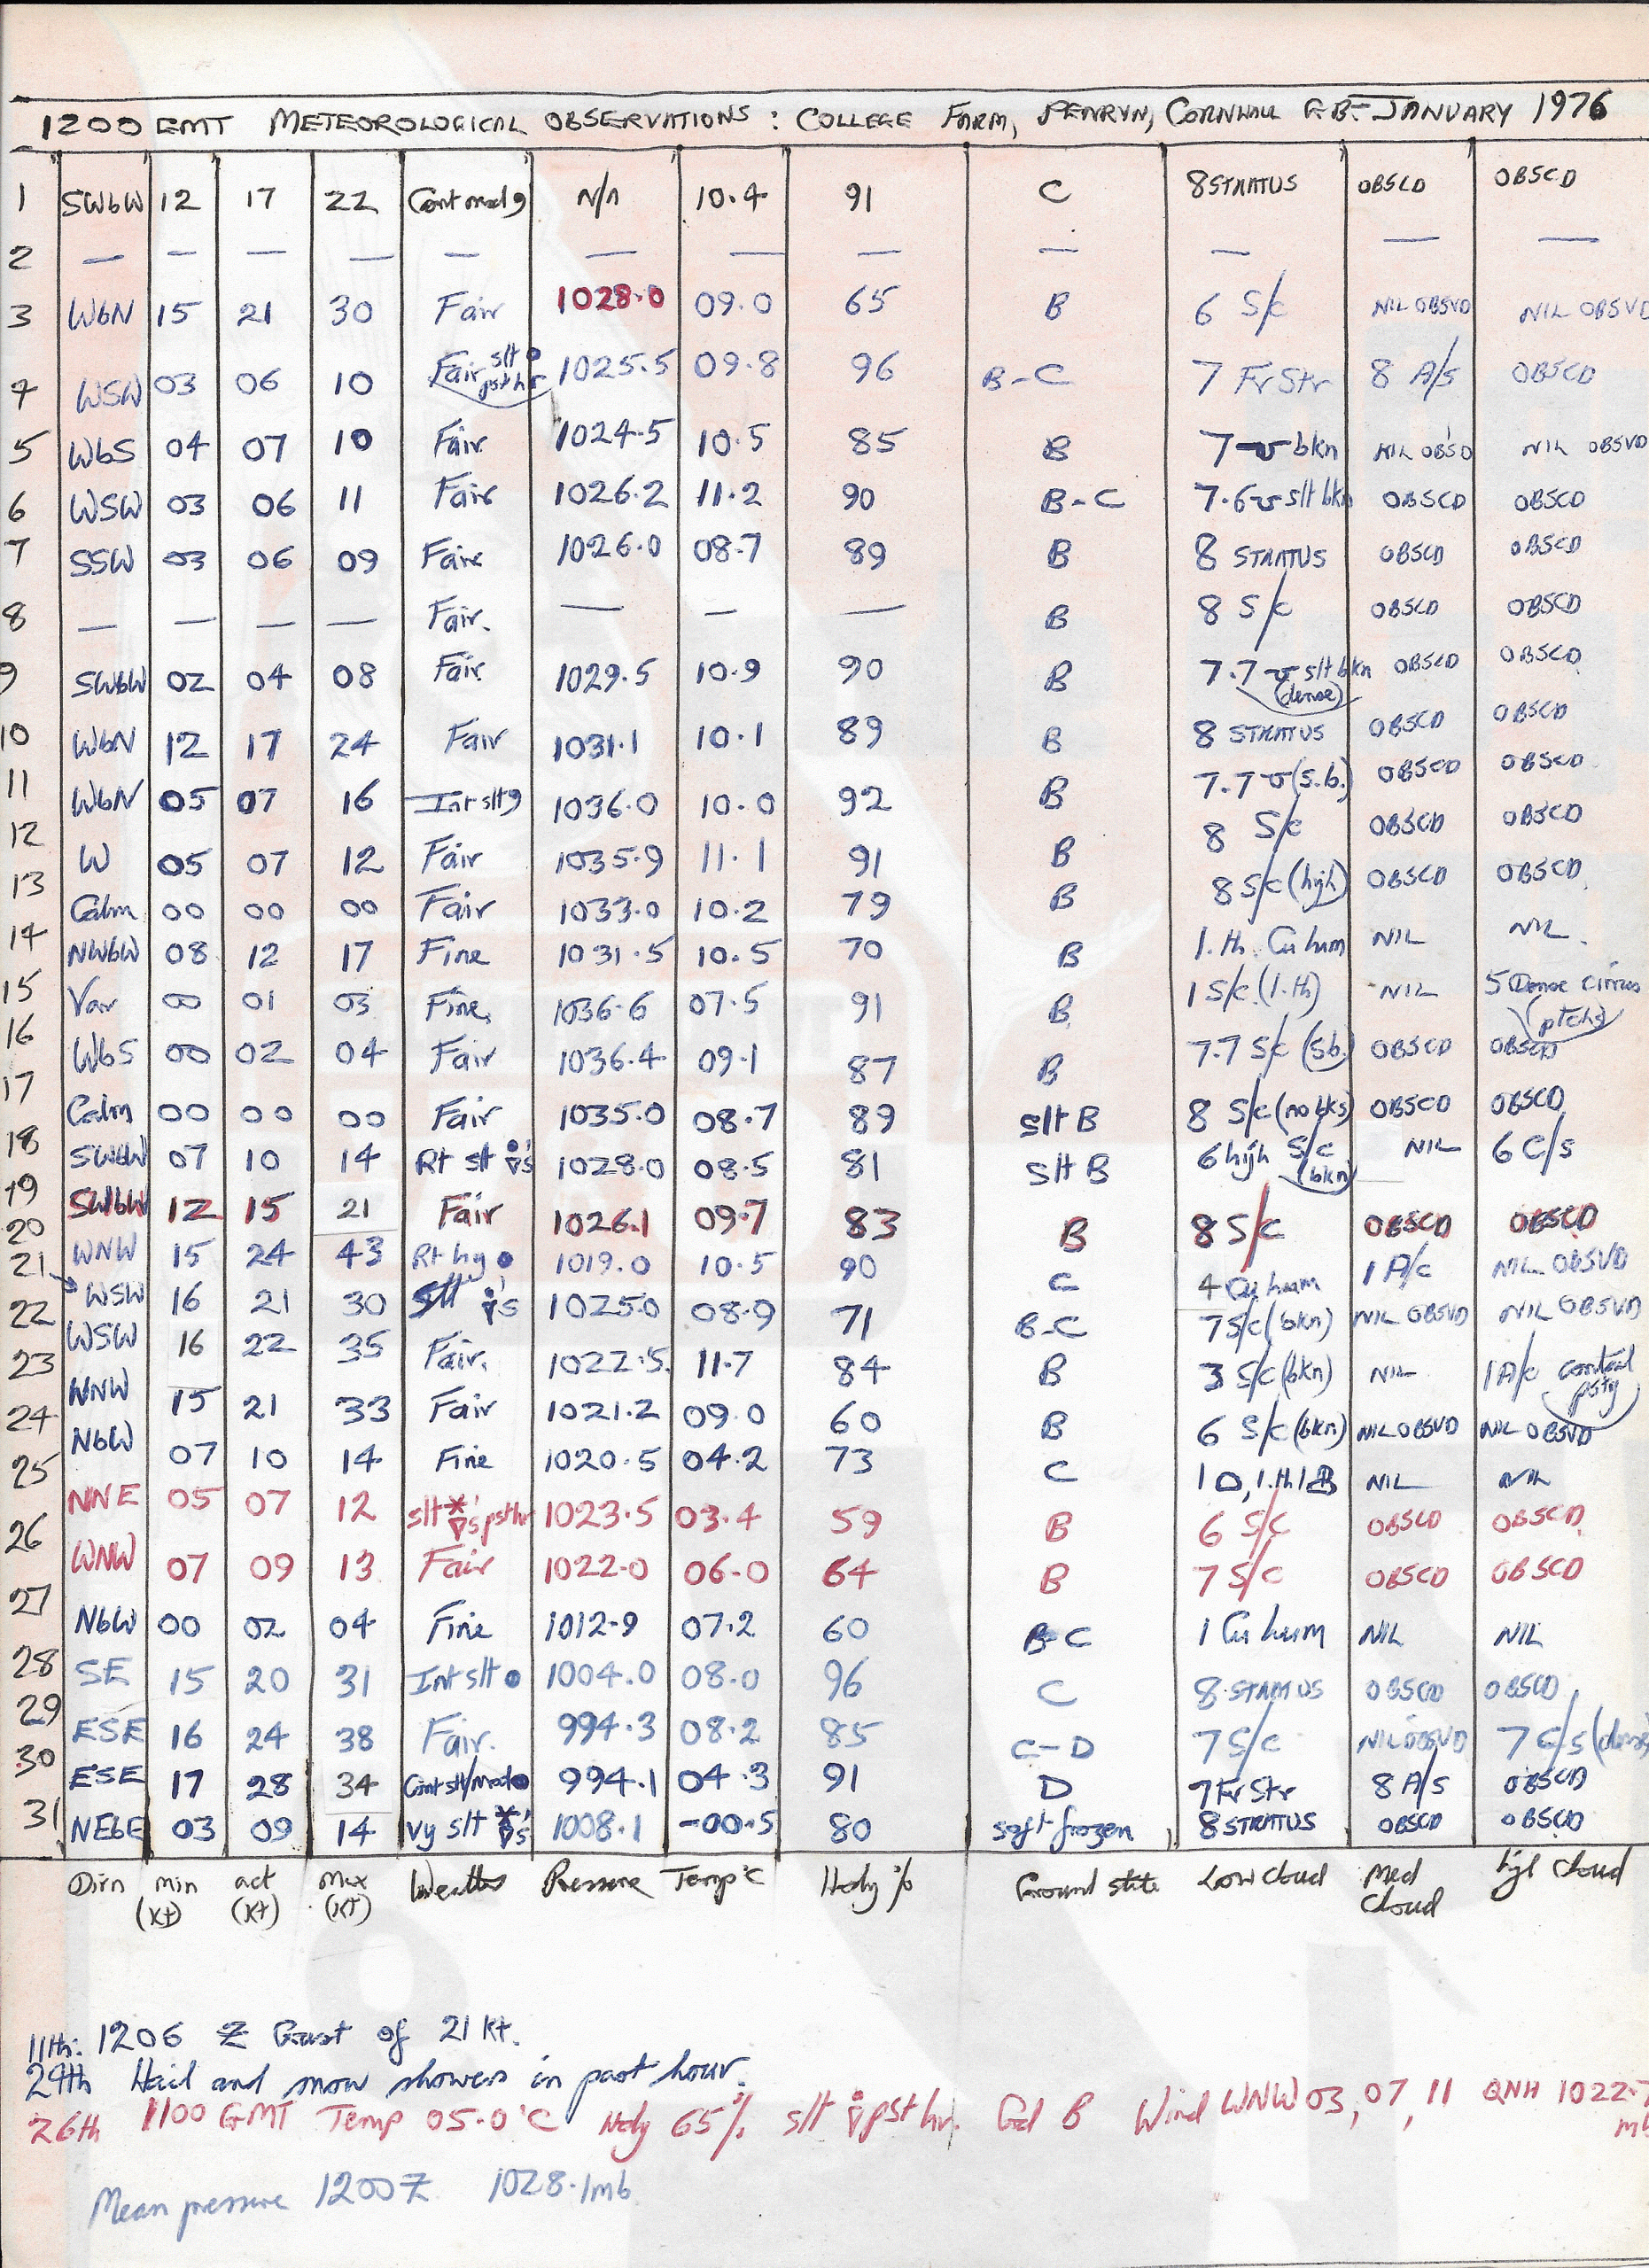 1200 GMT METEOROLOGICAL OBSERVATIONS : COLLEGE FARM, PENRYN, CORNWALL G.B. - JANUARY 1976
1 SWbW 12 17 22 Cont mod 9 N/A 10.4 91 C 8 STRATUS OBSCD OBSCD
2 — — — — — — — — — — — —
3 WbN 15 21 30 Fair 1028.0 09.0 65 B 6 S/c NIL OBSVD NIL OBSVD
4 WSW 03 06 10 Fair slt ● pst hr 1025.5 09.8 96 B-C 7 Fr Str 8 A/s OBSCD
5 WbS 04 07 10 Fair 1024.5 10.5 85 B 7 bkn NIL OBSD NIL OBSVD
6 WSW 03 06 11 Fair 1026.2 11.2 90 B-C 7.6 slt bkn OBSCD OBSCD
7 SSW 03 06 09 Fair 1026.0 08.7 89 B 8 STRATUS OBSCD OBSCD
8 — — — — Fair. — — — B 8 S/c OBSCD OBSCD
9 SWbW 02 04 08 Fair 1029.5 10.9 90 B 7.7 slt bkn (dense) OBSCD OBSCD
10 WbN 12 17 24 Fair 1031.1 10.1 89 B 8 STRATUS OBSCD OBSCD
11 WbN 05 07 16 Int slt 9 1036.0 10.0 92 B 7.7 (s.b.) OBSCD OBSCD
12 W 05 07 12 Fair 1035.9 11.1 91 B 8 S/c OBSCD OBSCD
13 Calm 00 00 00 Fair 1033.0 10.2 79 B 8 S/c (high) OBSCD OBSCD
14 NWbW 08 12 17 Fine 1031.5 10.5 70 B 1.th. Cu hum NIL NIL.
15 Var 00 01 03 Fine 1036.6 07.5 91 B 1 S/c (1.th) NIL 5 Dense cirrus (ptchs)
16 WbS 00 02 04 Fair 1036.4 09.1 87 B 7.7 S/c (sb.) OBSCD OBSCD
17 Calm 00 00 00 Fair 1035.0 08.7 89 slt B 8 S/c (no bks) OBSCD OBSCD
18 SWbW 07 10 14 Rt slt ●▽'s 1028.0 08.5 81 Slt B 6 high S/c (bkn) NIL 6 C/s
19 SWbW 12 15 21 Fair 1026.1 09.7 83 B 8 S/c OBSCD OBSCD
20 WNW 15 24 43 Rt hy ● 1019.0 10.5 90 C 4 Cu hum 1 A/c NIL OBSVD
21 WSW 16 21 30 Slt ●▽'s 1025.0 08.9 71 B-C 7 S/c (bkn) NIL OBSVD NIL OBSVD
22 WSW 16 22 35 Fair. 1022.5 11.7 84 B 3 S/c (bkn) NIL 1 A/c psty
23 WNW 15 21 33 Fair 1021.2 09.0 60 B 6 S/c (bkn) NIL OBSVD NIL OBSVD
24 NbW 07 10 14 Fine 1020.5 04.2 73 C NIL NIL
25 NNE 05 07 12 slt *▽'s pst hr 1023.5 03.4 59 B 6 S/c OBSCD OBSCD
26 WNW 07 09 13 Fair 1022.0 06.0 64 B 7 S/c OBSCD OBSCD
27 NbW 00 02 04 Fine 1012.9 07.2 60 B-C 1 Cu hum NIL NIL
28 SE 15 20 31 Int slt ● 1004.0 08.0 96 C 8 STRATUS OBSCD OBSCD
29 ESE 16 24 38 Fair. 994.3 08.2 85 C-D 7 S/c NIL OBSVD 7 C/s (dense)
30 ESE 17 28 34 Cont slt/mod ● 994.1 04.3 91 D 7 Fr Str 8 A/s OBSCD
31 NEbE 03 09 14 vy slt *▽'s 1008.1 -00.5 80 soft frozen 8 STRATUS OBSCD OBSCD
Dirn min (Kt) act (Kt) Max (KT) Weather Pressure Temp°C Hdy % Ground state Low Cloud Med Cloud High Cloud
11th: 1206 Z Gust of 21 Kt.
29th Hail and snow showers in past hour.
26th 1100 GMT Temp 05.0°C Hdy 65% slt ●▽ pst hr. Gd B Wind WNW 03, 07, 11 QNH 1022.7 mb
Mean pressure 1200 Z 1028.1mb